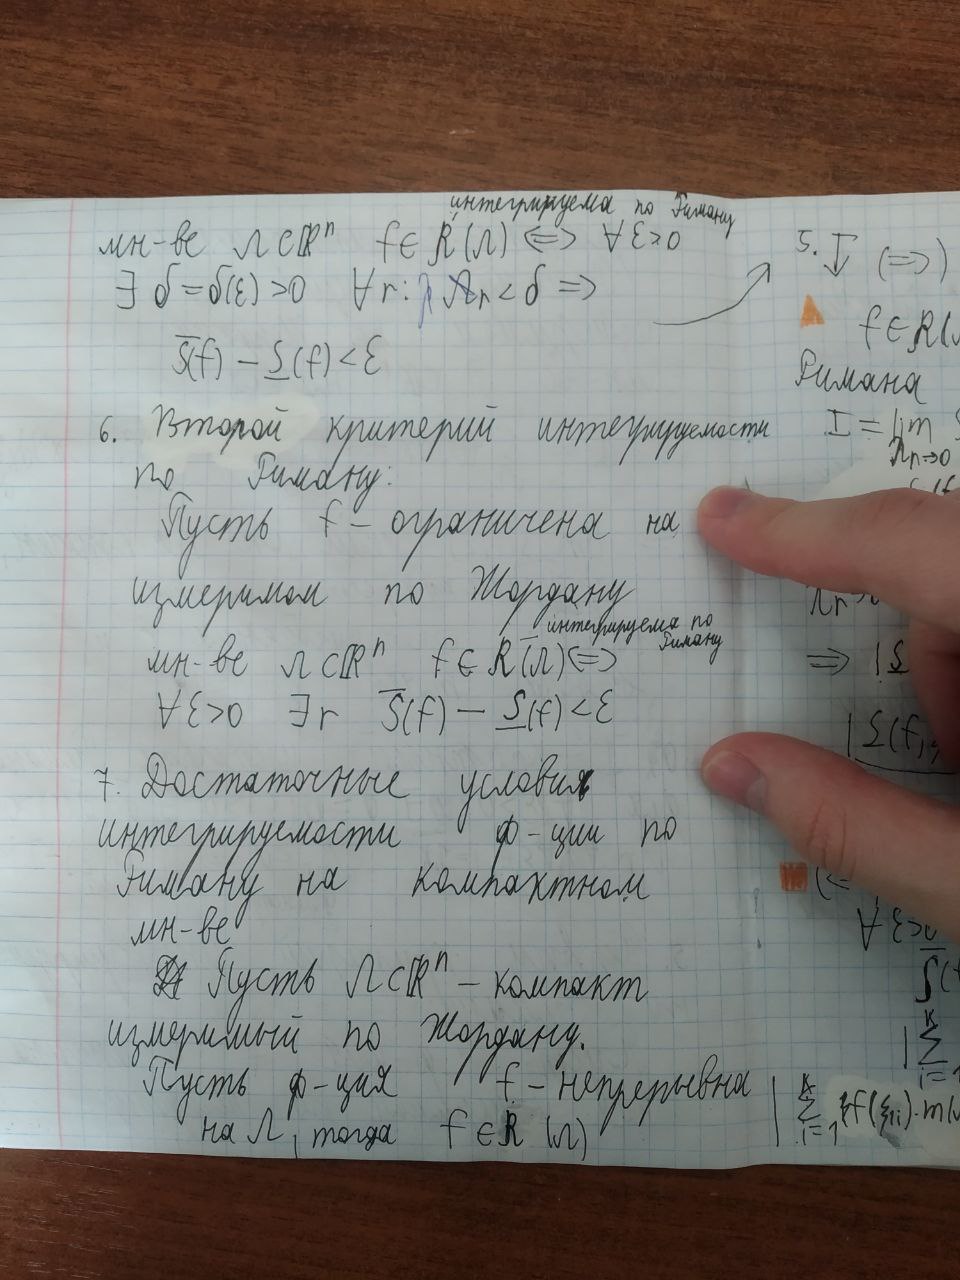 интегрируема по Риману
мн-ве Λ ⊂ ℝⁿ f ∈ R(Λ) ⟺ ∀ε>0
∃ δ = δ(ε) > 0 ∀r: λr < δ ⇒
S̅(f) − S̲(f) < ε
6. Второй критерий интегрируемости
по Риману:
Пусть f - ограничена на
измеримом по Жордану
интегрируема по
Риману
мн-ве Λ ⊂ ℝⁿ f ∈ R(Λ) ⟺
∀ε>0 ∃r S̅(f) − S̲(f) < ε
7. Достаточные условия
интегрируемости ф-ции по
Риману на компактном
мн-ве
Пусть Λ ⊂ ℝⁿ - компакт
измеримый по Жордану.
Пусть ф-ция f - непрерывна
на Λ, тогда f ∈ R (Λ)
5. (=>)
f ∈ R(Λ
Римана
I = lim
λr→0
⇒ |S̲
|Σ(f,
(<=
∀ε>0
|Σ
k
i=1
|Σ f(ξ₁ᵢ)·m(
k
i=1